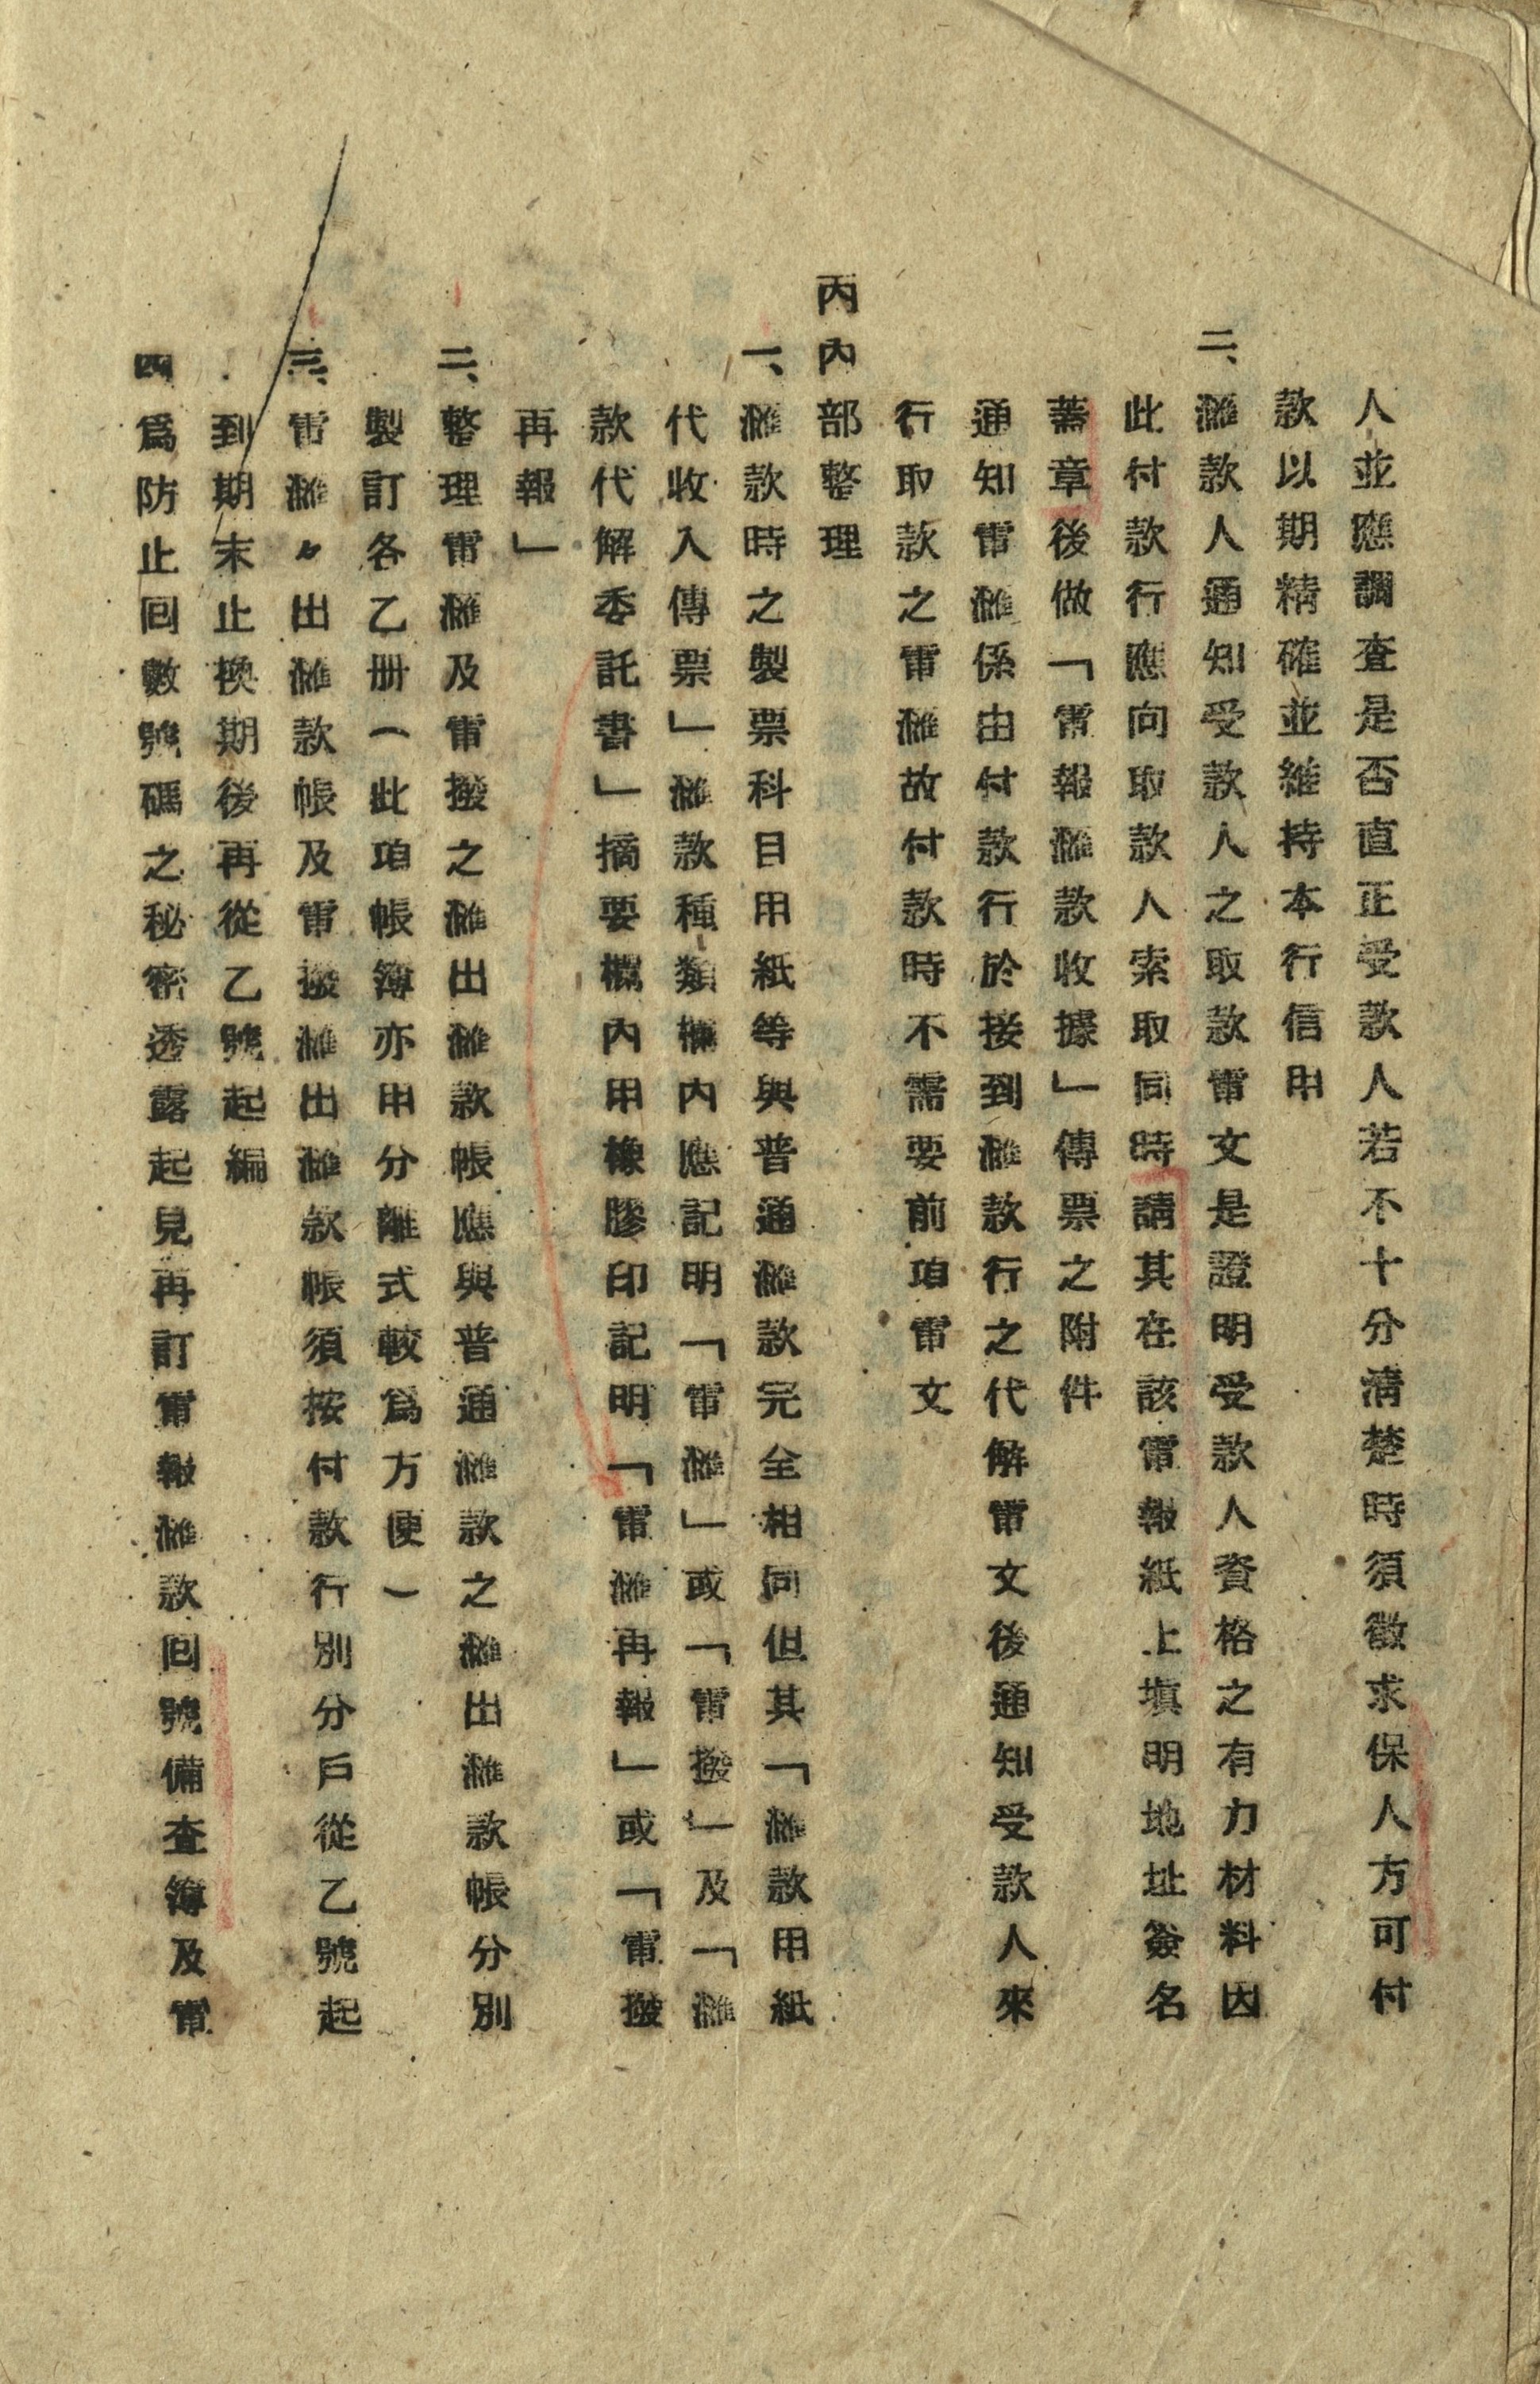 人並應調查是否直正受款人若不十分清楚時須徵求保人方可付
款以期精確並維持本行信用
二、滙款人通知受款人之取款電文是證明受款人資格之有力材料因
此付款行應向取款人索取同時請其在該電報紙上填明地址簽名
蓋章後做「電報滙款收據」傳票之附件
通知電滙係由付款行於接到滙款行之代解電文後通知受款人來
行取款之電滙故付款時不需要前項電文
丙內部整理
一、滙款時之製票科目用紙等與普通滙款完全相同但其「滙款用紙
代收入傳票」滙款種類欄內應記明「電滙」或「電撥」及「滙
款代解委託書」摘要欄內用橡膠印記明「電滙再報」或「電撥
再報」
二、整理電滙及電撥之滙出滙款帳應與普通滙款之滙出滙款帳分別
製訂各乙册（此項帳簿亦用分離式較爲方便）
三、電滙々出滙款帳及電撥滙出滙款帳須按付款行別分戶從乙號起
到期末止換期後再從乙號起編
四爲防止回數號碼之秘密透露起見再訂電報滙款回號備查簿及電